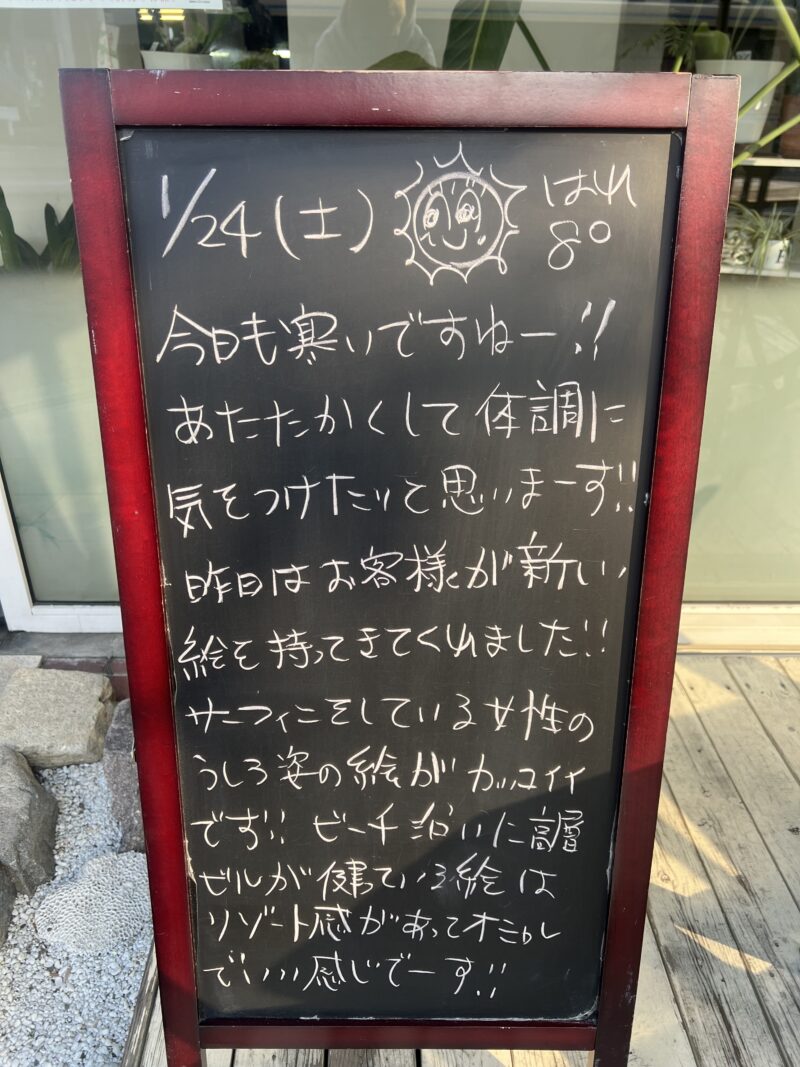 1/24(土) はれ 8°
今日も寒いですねー!!
あたたかくして体調に
気をつけたいと思いまーす!!
昨日はお客様が新しい
絵を持ってきてくれました!!
サーフィンをしている女性の
うしろ姿の絵がカッコイイ
です!! ビーチ沿いに高層
ビルが健っている絵は
リゾート感があってオシャレ
でいい感じでーす!!